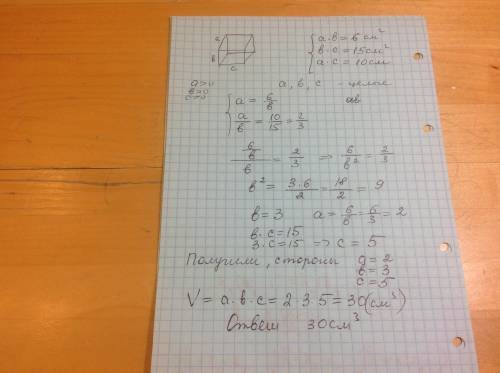 a
в
c
a·в = 6 см²
в·c = 15 см²
a·c = 10 см
a>0
в>0
c>0
a, в, c - целые
a = 6/в
ав
a/в = 10/15 = 2/3
(6/в)/в = 2/3 => 6/в² = 2/3
в² = 3·6/2 = 18/2 = 9
в = 3 a = 6/в = 6/3 = 2
в·c = 15
3·c = 15 => c = 5
Получили, стороны a = 2
в = 3
c = 5
V = a·в·c = 2·3·5 = 30 (см³)
Ответ 30 см³